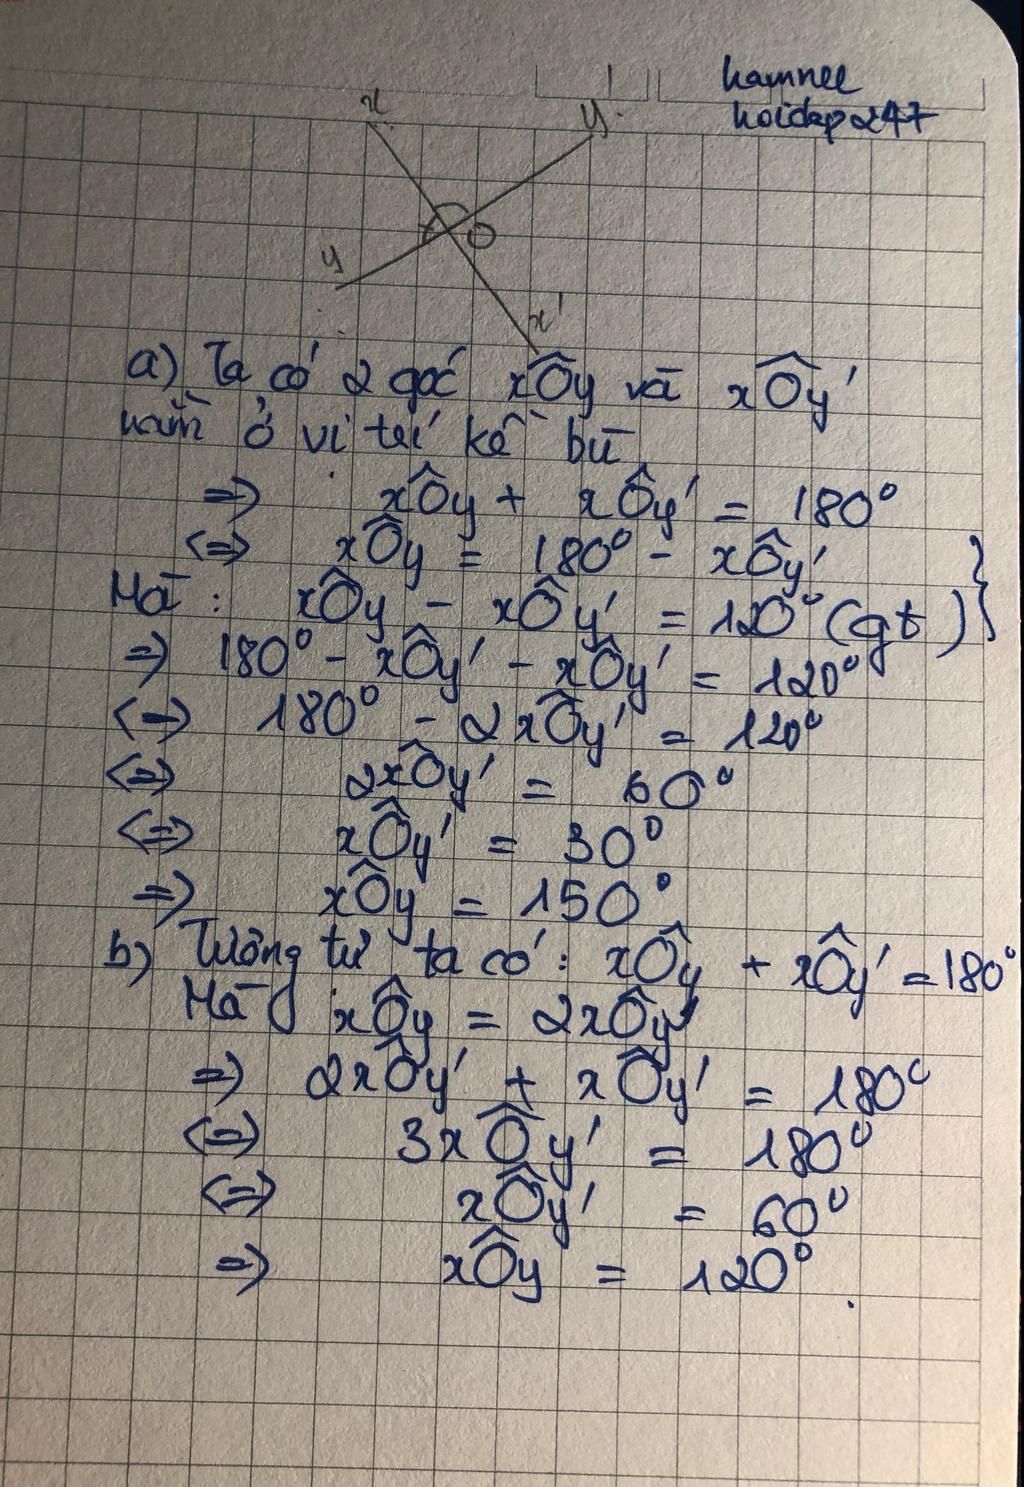 kamnee
hoidap247
x
y'
O
y
x'
a) Ta có 2 góc xÔy và xÔy'
nằm ở vị trí kề bù
=> xÔy + xÔy' = 180°
<=> xÔy = 180° - xÔy'
Mà : xÔy - xÔy' = 120° (gt) }
=> 180° - xÔy' - xÔy' = 120°
<=> 180° - 2xÔy' = 120°
<=> 2xÔy' = 60°
<=> xÔy' = 30°
=> xÔy = 150°
b) Tương tự ta có : xÔy + xÔy' = 180°
Mà xÔy = 2xÔy'
=> 2xÔy' + xÔy' = 180°
<=> 3xÔy' = 180°
<=> xÔy' = 60°
=> xÔy = 120°.